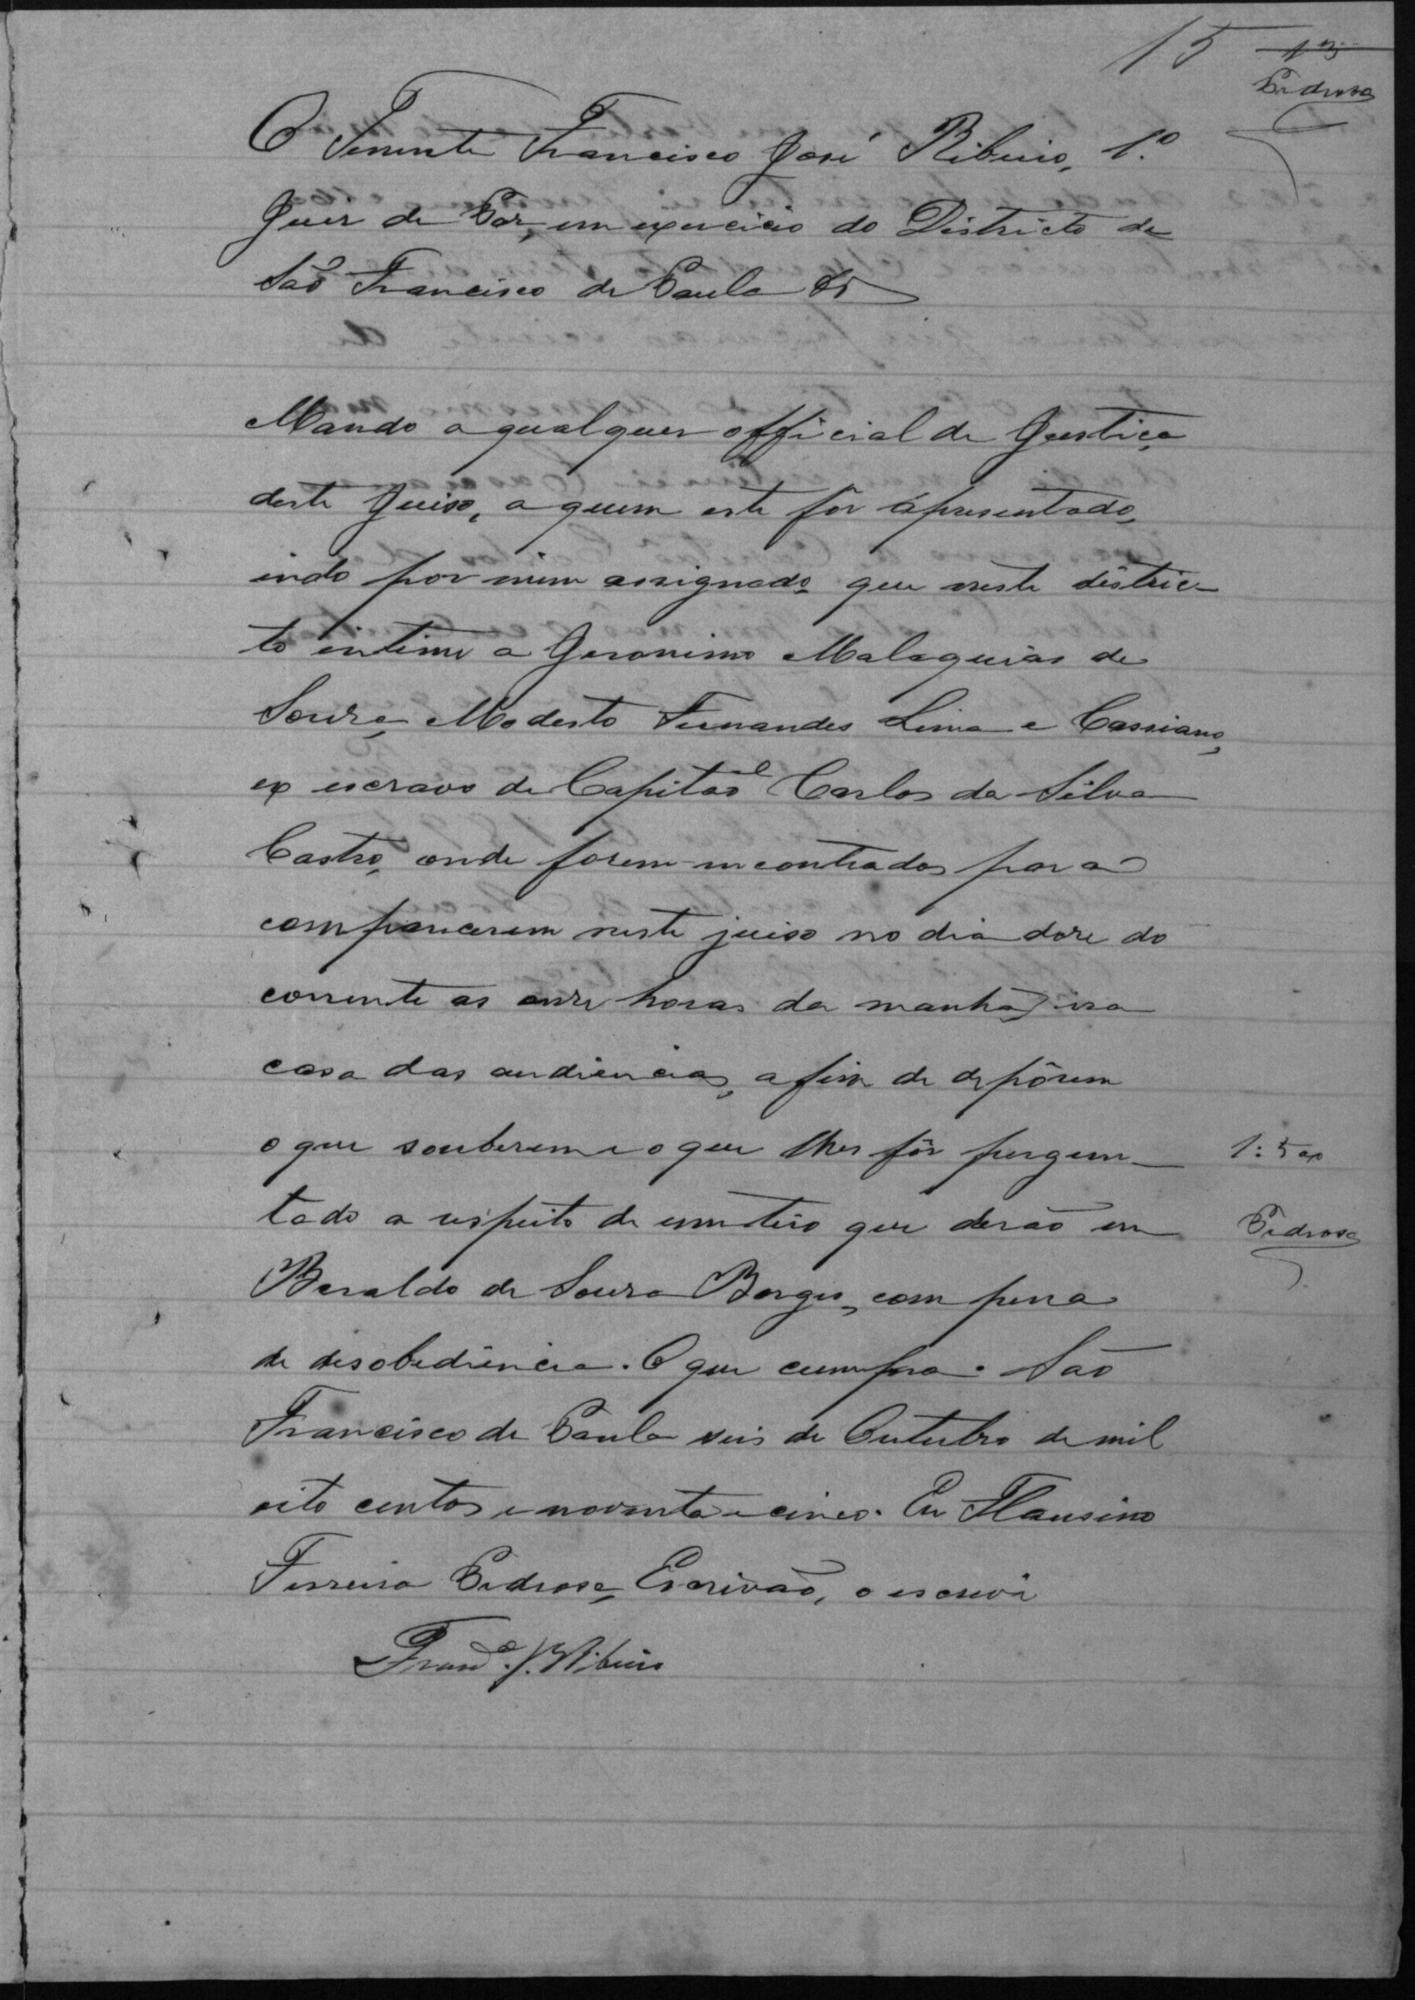 15 13
Pedrosa
O Tenente Francisco José Ribeiro, 1.º
Juiz de Paz, em exercicio do Districto de
São Francisco de Paula &
Mando a qualquer official de Justiça,
deste Juiso, a quem este fôr apresentado,
indo por mim assignado que neste distric-
to intime a Jeronimo Malaquias de
Souza, Modesto Fernandes Lima e Cassiano,
ex escravo de Capitão Carlos da Silva
Castro, onde forem encontrados para
comparecerem neste juiso no dia doze do
corrente as onze horas da manhã, na
casa das audiencias, afim de depôrem
o que souberem e o que lhes fôr pergun-
tado a respeito de um tiro que derão em
Beraldo de Souza Borges, com pena
de desobediencia. O que cumpra. São
Francisco de Paula seis de Outubro de mil
oito centos e noventa e cinco. Eu Flausino
Ferreira Pedrosa, Escrivão, o escrevi
Franc.º J. Ribeiro
1:500
Pedrosa